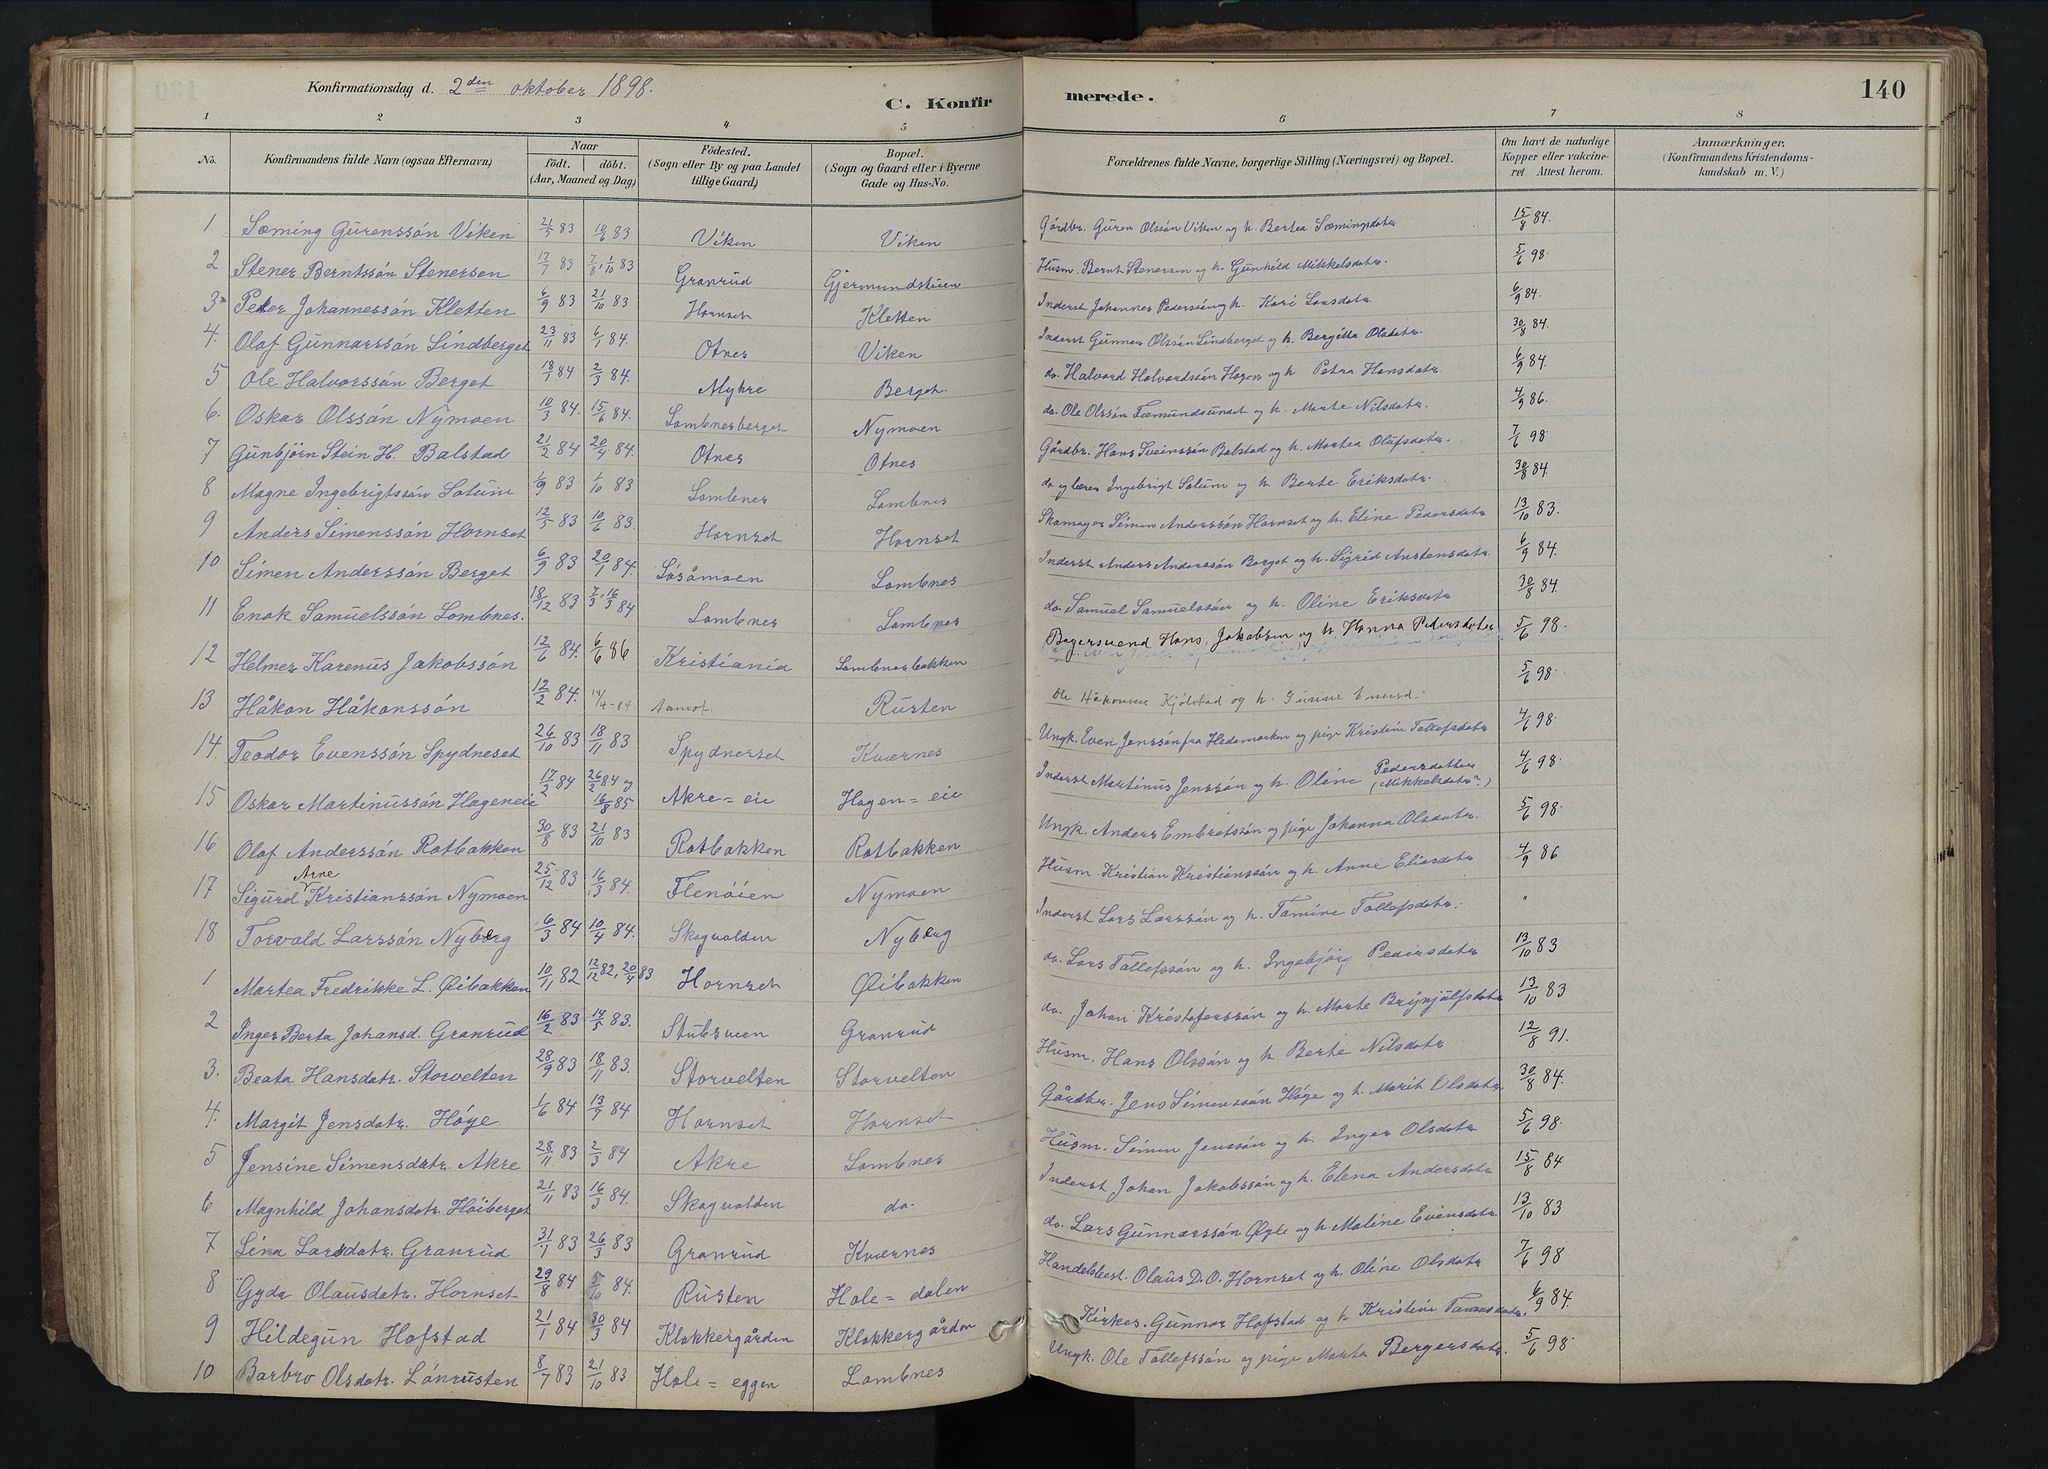 Konfirmationsdag d. 2den oktober 1898.
C. Konfirmerede.
140
1 2 3 4 5 6 7 8
No. Konfirmandens fulde Navn (ogsaa Efternavn) Naar födt. döbt. (Aar, Maaned og Dag) Födested. (Sogn eller By og paa Landet tillige Gaard) Bopæl. (Sogn og Gaard eller i Byerne Gade og Hus-No. Forældrenes fulde Navne, borgerlige Stilling (Næringsvei) og Bopæl. Om havt de naturlige Kopper eller vakcineret. Attest herom. Anmærkninger. (Konfirmandens Kristendomskundskab m. V.)
1 Sæming Gurenssön Viken 21/5 83 10/6 83 Viken Viken Gårdbr. Guren Olssön Viken og h. Bertea Sæmingsdatr 15/8 84.
2 Stener Berntssön Stenersen 17/7 83 7/8, 1/10 83 Granrud Gjermundstuen Husm. Bernt Stenersen og h. Gunhild Mikkelsdatr. 5/6 98.
3 Peter Johannessön Kletten 6/9 83 21/10 83 Hornset Kletten Inderst Johannes Pederssön og h. Kari Larsdatr 6/9 84.
4. Olaf Gunnarssön Lindberget 23/11 83 6/1 84. Otnes Viken Inderst Gunnar Olssön Lindberget og h. Bergitta Olsdatr. 30/8 84.
5 Ole Halvorssön Berget 18/1 84 2/3 84. Myhre Berget. do. Halvard Halvardssön Hagen og h. Petra Hansdatr. 6/9 84.
6. Oskar Olssön Nymoen 10/3 84. 15/6 84. Lombnesberget Nymoen do. Ole Olssön Fæmundsundet og h. Marte Nilsdatr. 4/9 86.
7 Gunbjörn Stein H. Balstad 21/2 84 20/4 84. Otnes Otnes Gårdbr. Hans Sveinssön Balstad og h. Martea Olufsdatr. 7/6 98.
8 Magne Ingebrigtssön Solum 1/9 83 1/10 83 Lombnes Lombnes do. og lærer Ingebrigt Solum og h. Berte Eriksdatr. 30/8 84.
9 Anders Simenssön Hornset 12/5 83 10/6 83. Hornset Hornset Skomager Simen Anderssön Hornset og h. Eline Pedersdatr 13/10 83.
10 Simen Anderssön Berget 6/9 83 20/1 84. Lösåmoen Lombnes Inderst Anders Anderssön Berget og h. Sigrid Anstensdatr. 6/9 84.
11 Enok Samuelssön Lombnes. 18/12 83 7/3, 16/3 84 Lombnes Lombnes do. Samuel Samuelssön og h. Oline Eriksdatr 30/8 84.
12 Helmer Karenus Jakobssön 12/6 84. 6/6 86 Kristiania Lombnesbakken Bagersvend Hans Jakobsen og h Hanna Pedersdatter 5/6 98.
13 Håkon Håkonssön 12/2 84. 14/4-84 Aamot. Rusten Ole Håkonsen Kjölstad og h. 5/6 98.
14. Teodor Evenssön Spydneset 26/10 83 18/11 83 Spydneset Kværnes Ungk. Even Jenssön fra Hedemarken og pige Kristine Tollefsdatr 4/6 98.
15 Oskar Martinussön Hageneie 17/2 84 26/2 84 og 16/8 85 Akre=eie Hagen=eie Inderst Martinus Jenssön og h. Oline Pedersdatter (Mikkelsdatr?) 4/6 98.
16 Olaf Anderssön Rotbakken 30/8 83 21/10 83 Rotbakken Rotbakken Ungk. Anders Embretssön og pige Johanna Olsdatr. 5/6 98.
17 Sigurd Arne Kristianssön Nymoen 25/12 83 16/3 84. Flenöien Nymoen Husm Kristian Kristianssön og h. Anne Eliasdatr 4/9 86
18 Torvald Larssön Nyberg 6/3 84 10/4 84. Skogvolden Nyberg Inderst Lars Larssön og h. Tamine Tollefsdatr. "
1 Martea Fredrikke L. Öibakken 10/11 82 12/12 82, 20/4 83 Hornset Öibakken do. Lars Tollefssön og h. Ingebjörg Pedersdatr 13/10 83
2 Inger Berta Johansd. Granrud 16/2 83 14/5 83. Stubsveen Granrud do. Johan Kristoferssön og h. Marte Brynjulfsdatr 13/10 83
3. Beata Hansdatr. Storvelten 28/9 83 18/11 83. Storvelten Storvelten Husm. Hans Olssön og h Berte Nilsdatr 12/8 91.
4. Margit Jensdatr. Höge 1/6 84 13/7 84 Hornset Hornset Gårdbr. Jens Simenssön Höge og h. Marit Olsdatr. 30/8 84.
5 Jensine Simensdatr. Akre 28/11 83 2/3 84 Akre Lombnes Husm. Simen Jenssön og h. Inger Olsdatr 5/6 98.
6 Magnhild Johansdatr. Höiberget 21/11 83 16/3 84. Skogvolden do. Inderst Johan Jakobssön og h. Elena Andersdatr 15/8 84
7 Lina Larsdatr. Granrud 31/1 83 26/3 83 Granrud Kværnes do. Lars Gunnarssön Øgle og h Maline Evensdatr. 13/10 83
8 Gyda Olausdatr. Hornset 29/8 84 5/10 84. Rusten Hole=dalen Handelsbest. Olaus D. O. Hornset og h. Oline Olsdatr 7/6 98
9 Hildegun Hofstad 21/1 84 30/3 84 Klokkergården Klokkergården Kirkes. Gunnar Hofstad og h Kristine Tamasdatr. 6/9 84.
10 Barbro Olsdatr. Lönrusten 8/7 83 21/10 83 Hole=eggen Lombnes Ungk. Ole Tollefssön og pige Marta Bergersdatr. 5/6 98.